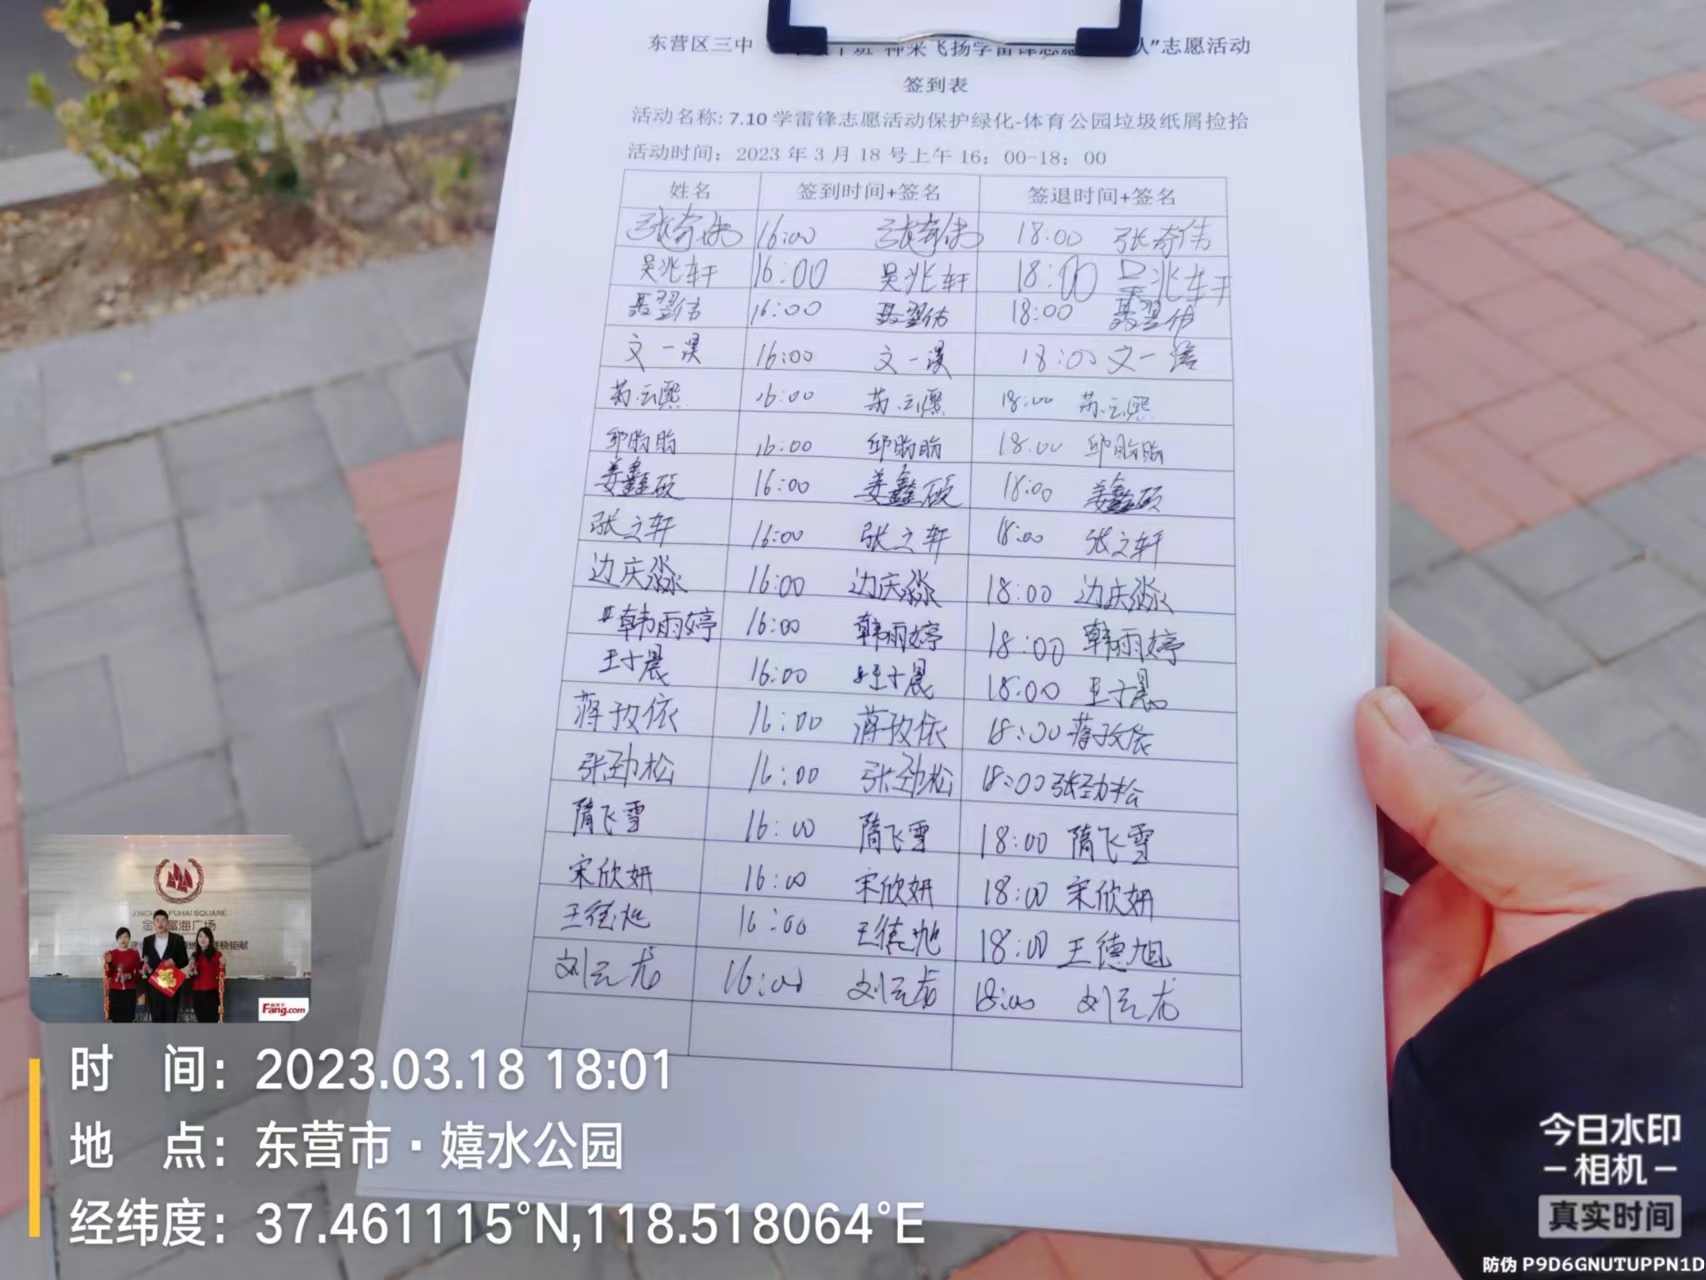 东营区三中 神采飞扬学雷锋志愿 队”志愿活动
签到表
活动名称: 7.10 学雷锋志愿活动保护绿化-体育公园垃圾纸屑捡拾
活动时间：2023 年 3 月 18 号上午 16：00-18：00
姓名 签到时间+签名 签退时间+签名
张奇伟 16:00 张奇伟 18:00 张奇伟
吴兆轩 16:00 吴兆轩 18:00 吴兆轩
聂翌伟 16:00 聂翌伟 18:00 聂翌伟
文一淏 16:00 文一淏 18:00 文一
苏云熙 16:00 苏云熙 18:00 苏云熙
邱昀昀 16:00 邱昀昀 18:00 邱昀昀
姜鑫硕 16:00 姜鑫硕 18:00 姜鑫硕
张之轩 16:00 张之轩 18:00 张之轩
边庆淼 16:00 边庆淼 18:00 边庆淼
韩雨婷 16:00 韩雨婷 18:00 韩雨婷
王子晨 16:00 王子晨 18:00 王子晨
蒋孜依 16:00 蒋孜依 18:00 蒋孜依
张劲松 16:00 张劲松 18:00 张劲松
隋飞雪 16:00 隋飞雪 18:00 隋飞雪
宋欣妍 16:00 宋欣妍 18:00 宋欣妍
王德旭 16:00 王德旭 18:00 王德旭
刘云龙 16:00 刘云龙 18:00 刘云龙
FUHAI SQUARE
富海广场
Fang.com
时 间：2023.03.18 18:01
地 点：东营市·嬉水公园
经纬度：37.461115°N,118.518064°E
今日水印
-相机-
真实时间
防伪 P9D6GNUTUPPN1D